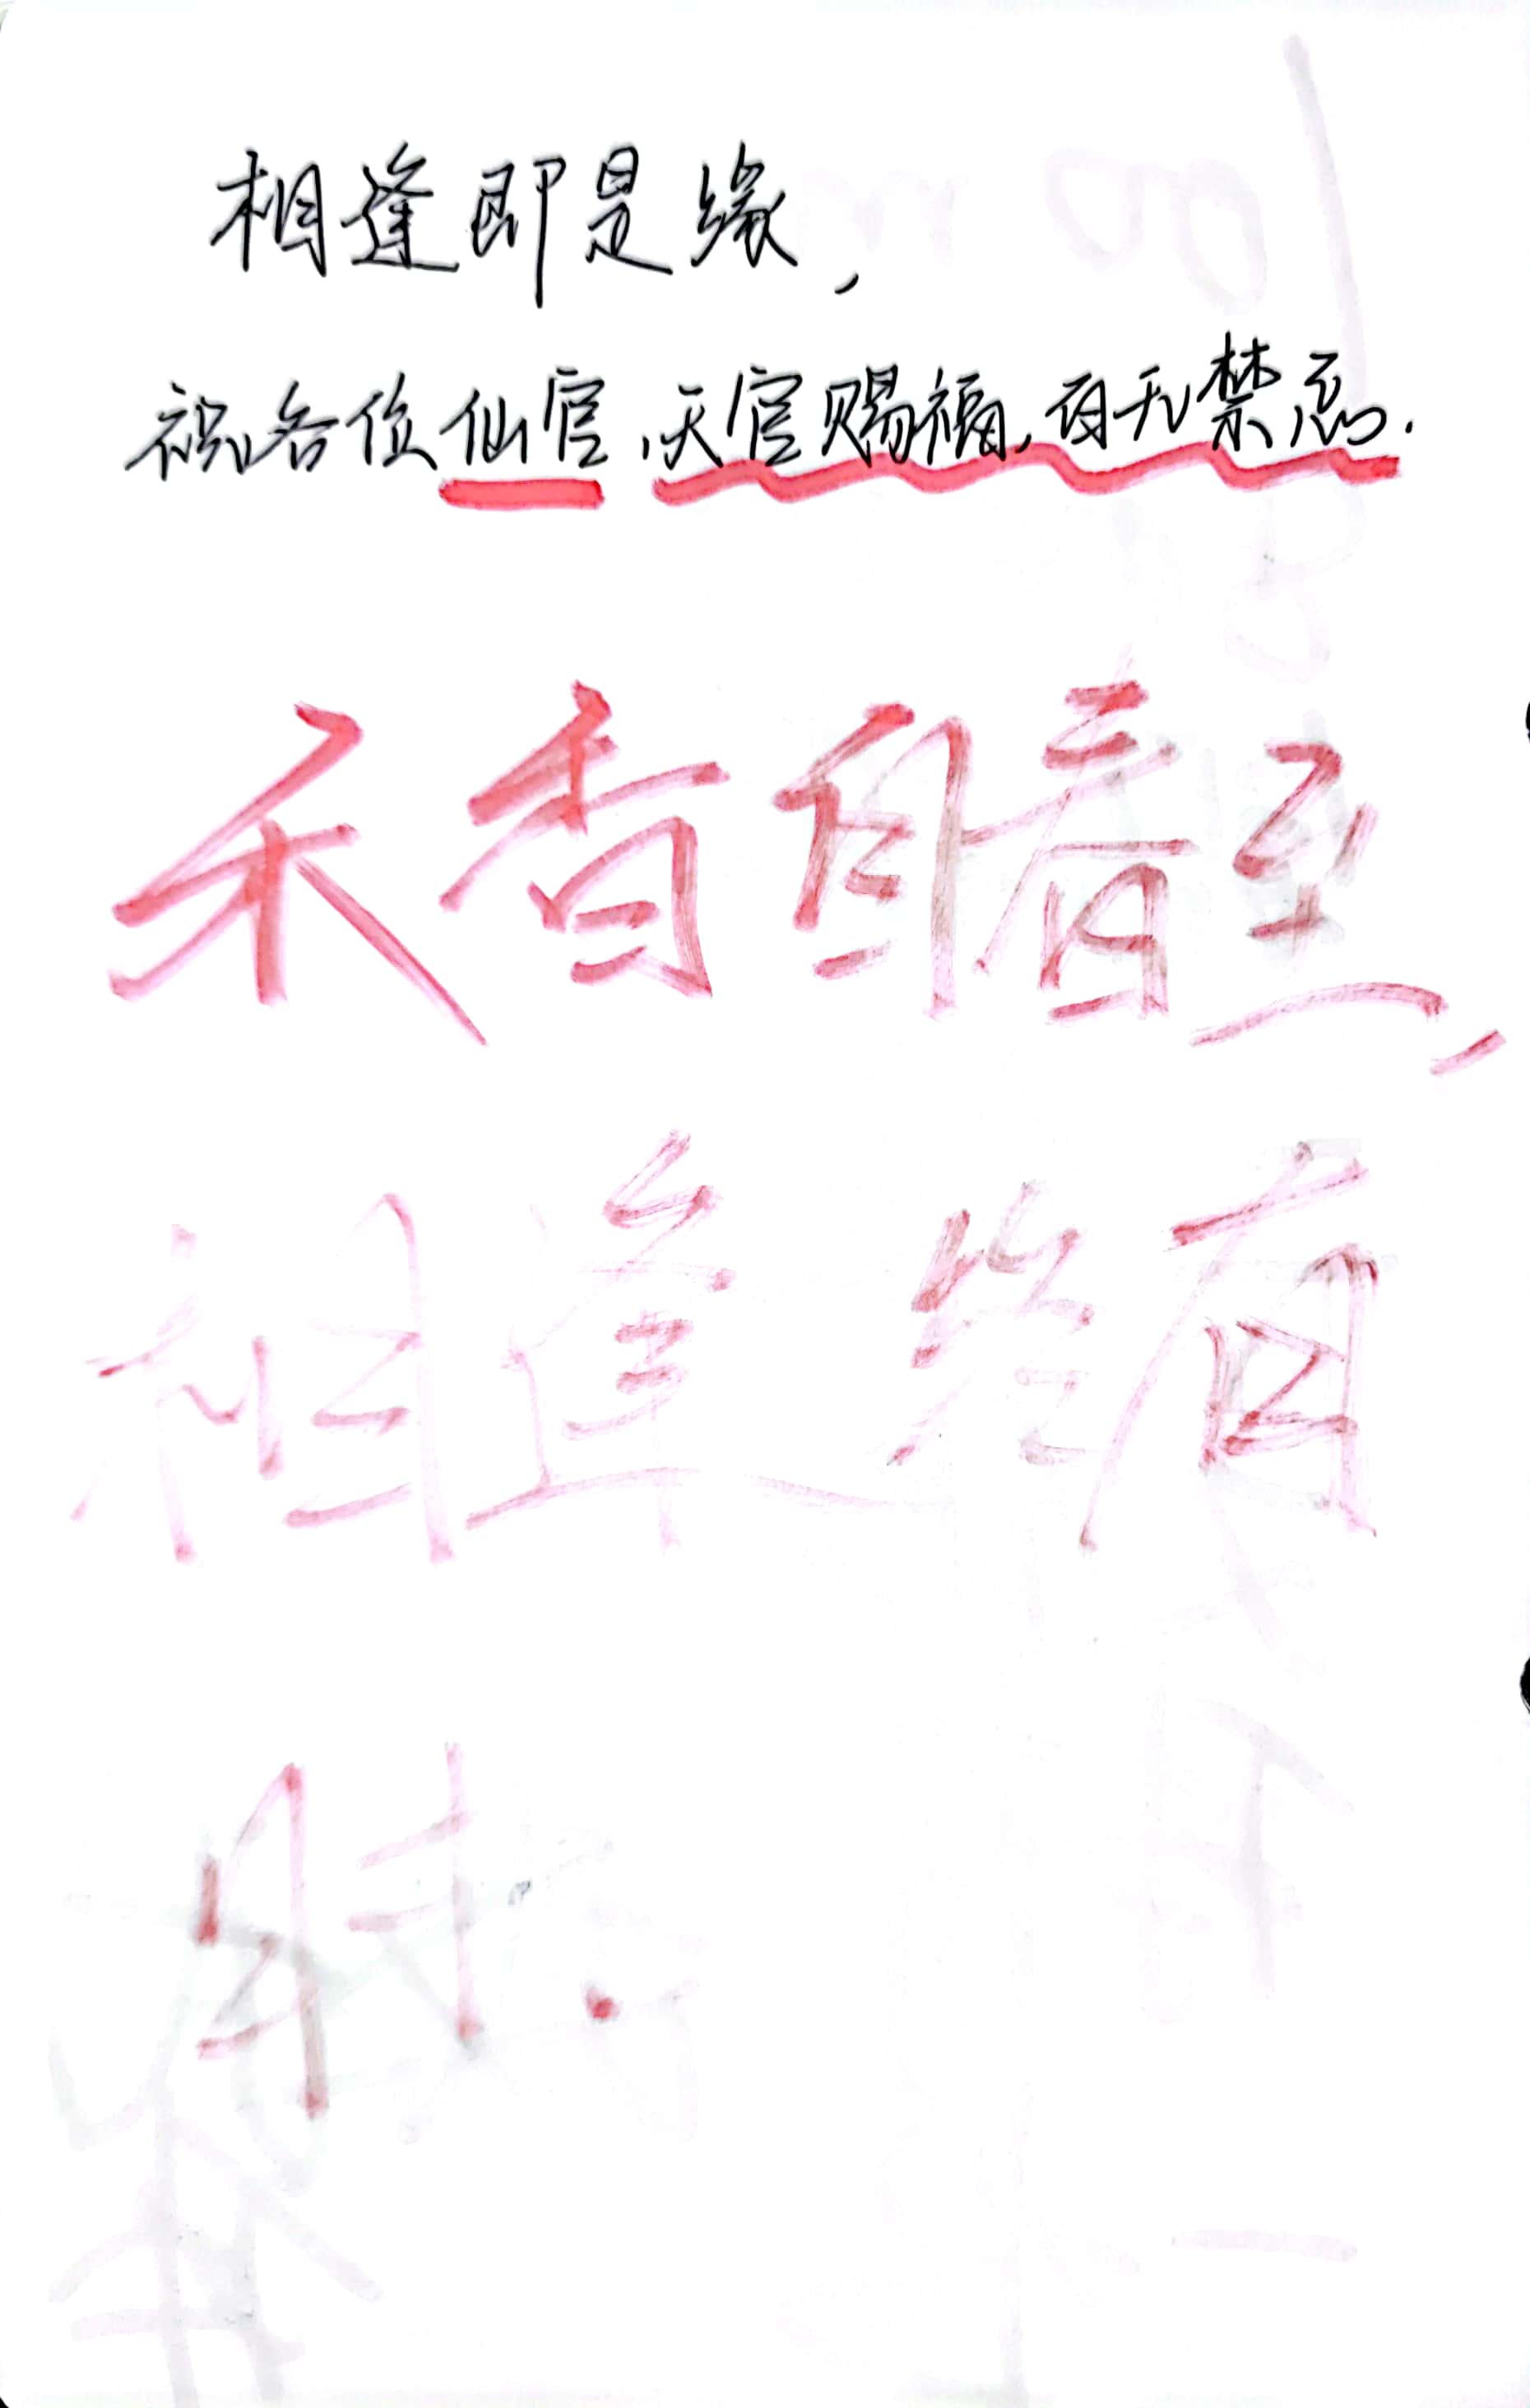 相逢即是缘,
祝各位仙官,天官赐福,百无禁忌.
禾香自看至,
相逢终有
时.